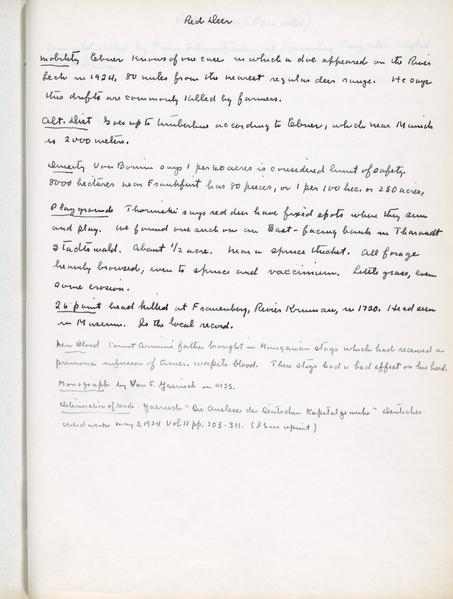 Red Deer
Mobility Ebner knows of one case in which a doe appeared on the River
Lech in 1924, 80 miles from the nearest regular deer range. He says
this drifts are commonly killed by farmers.
Alt. Dist Goes up to timberline according to Ebner, which near Munich
is 2000 meters.
Density Von Bonin says 1 per 60 acres is considered limit of safety.
8000 hectares near Frankfurt has 80 pieces, or 1 per 100 hec. or 250 acres.
Playgrounds says red deer have fixed spots where they sun
and play. We found one such on an East-facing bank in Tharandt
Stadtswald. About 1/2 acre. Near a spruce thicket. All forage
heavily browsed, even to spruce and vaccinium. Little grass, even
some erosion.
26 point head killed at Frauenberg, Revier Krumau, in 1720. Head seen
in Museum. Is the local record.
New Blood Count Arnim's father brought in Hungarian stags which had received a
previous infusion of Amer. wapiti blood. These stags had a bad effect on his herd.
Monograph by Von F. in MSS.
Deterioration of heads "Die Auslese der Deutschen Kapitalgeweihe" Deutsches
Weidwerk May 3, 1934 Vol 11 pp. 305-311. (I have reprint)